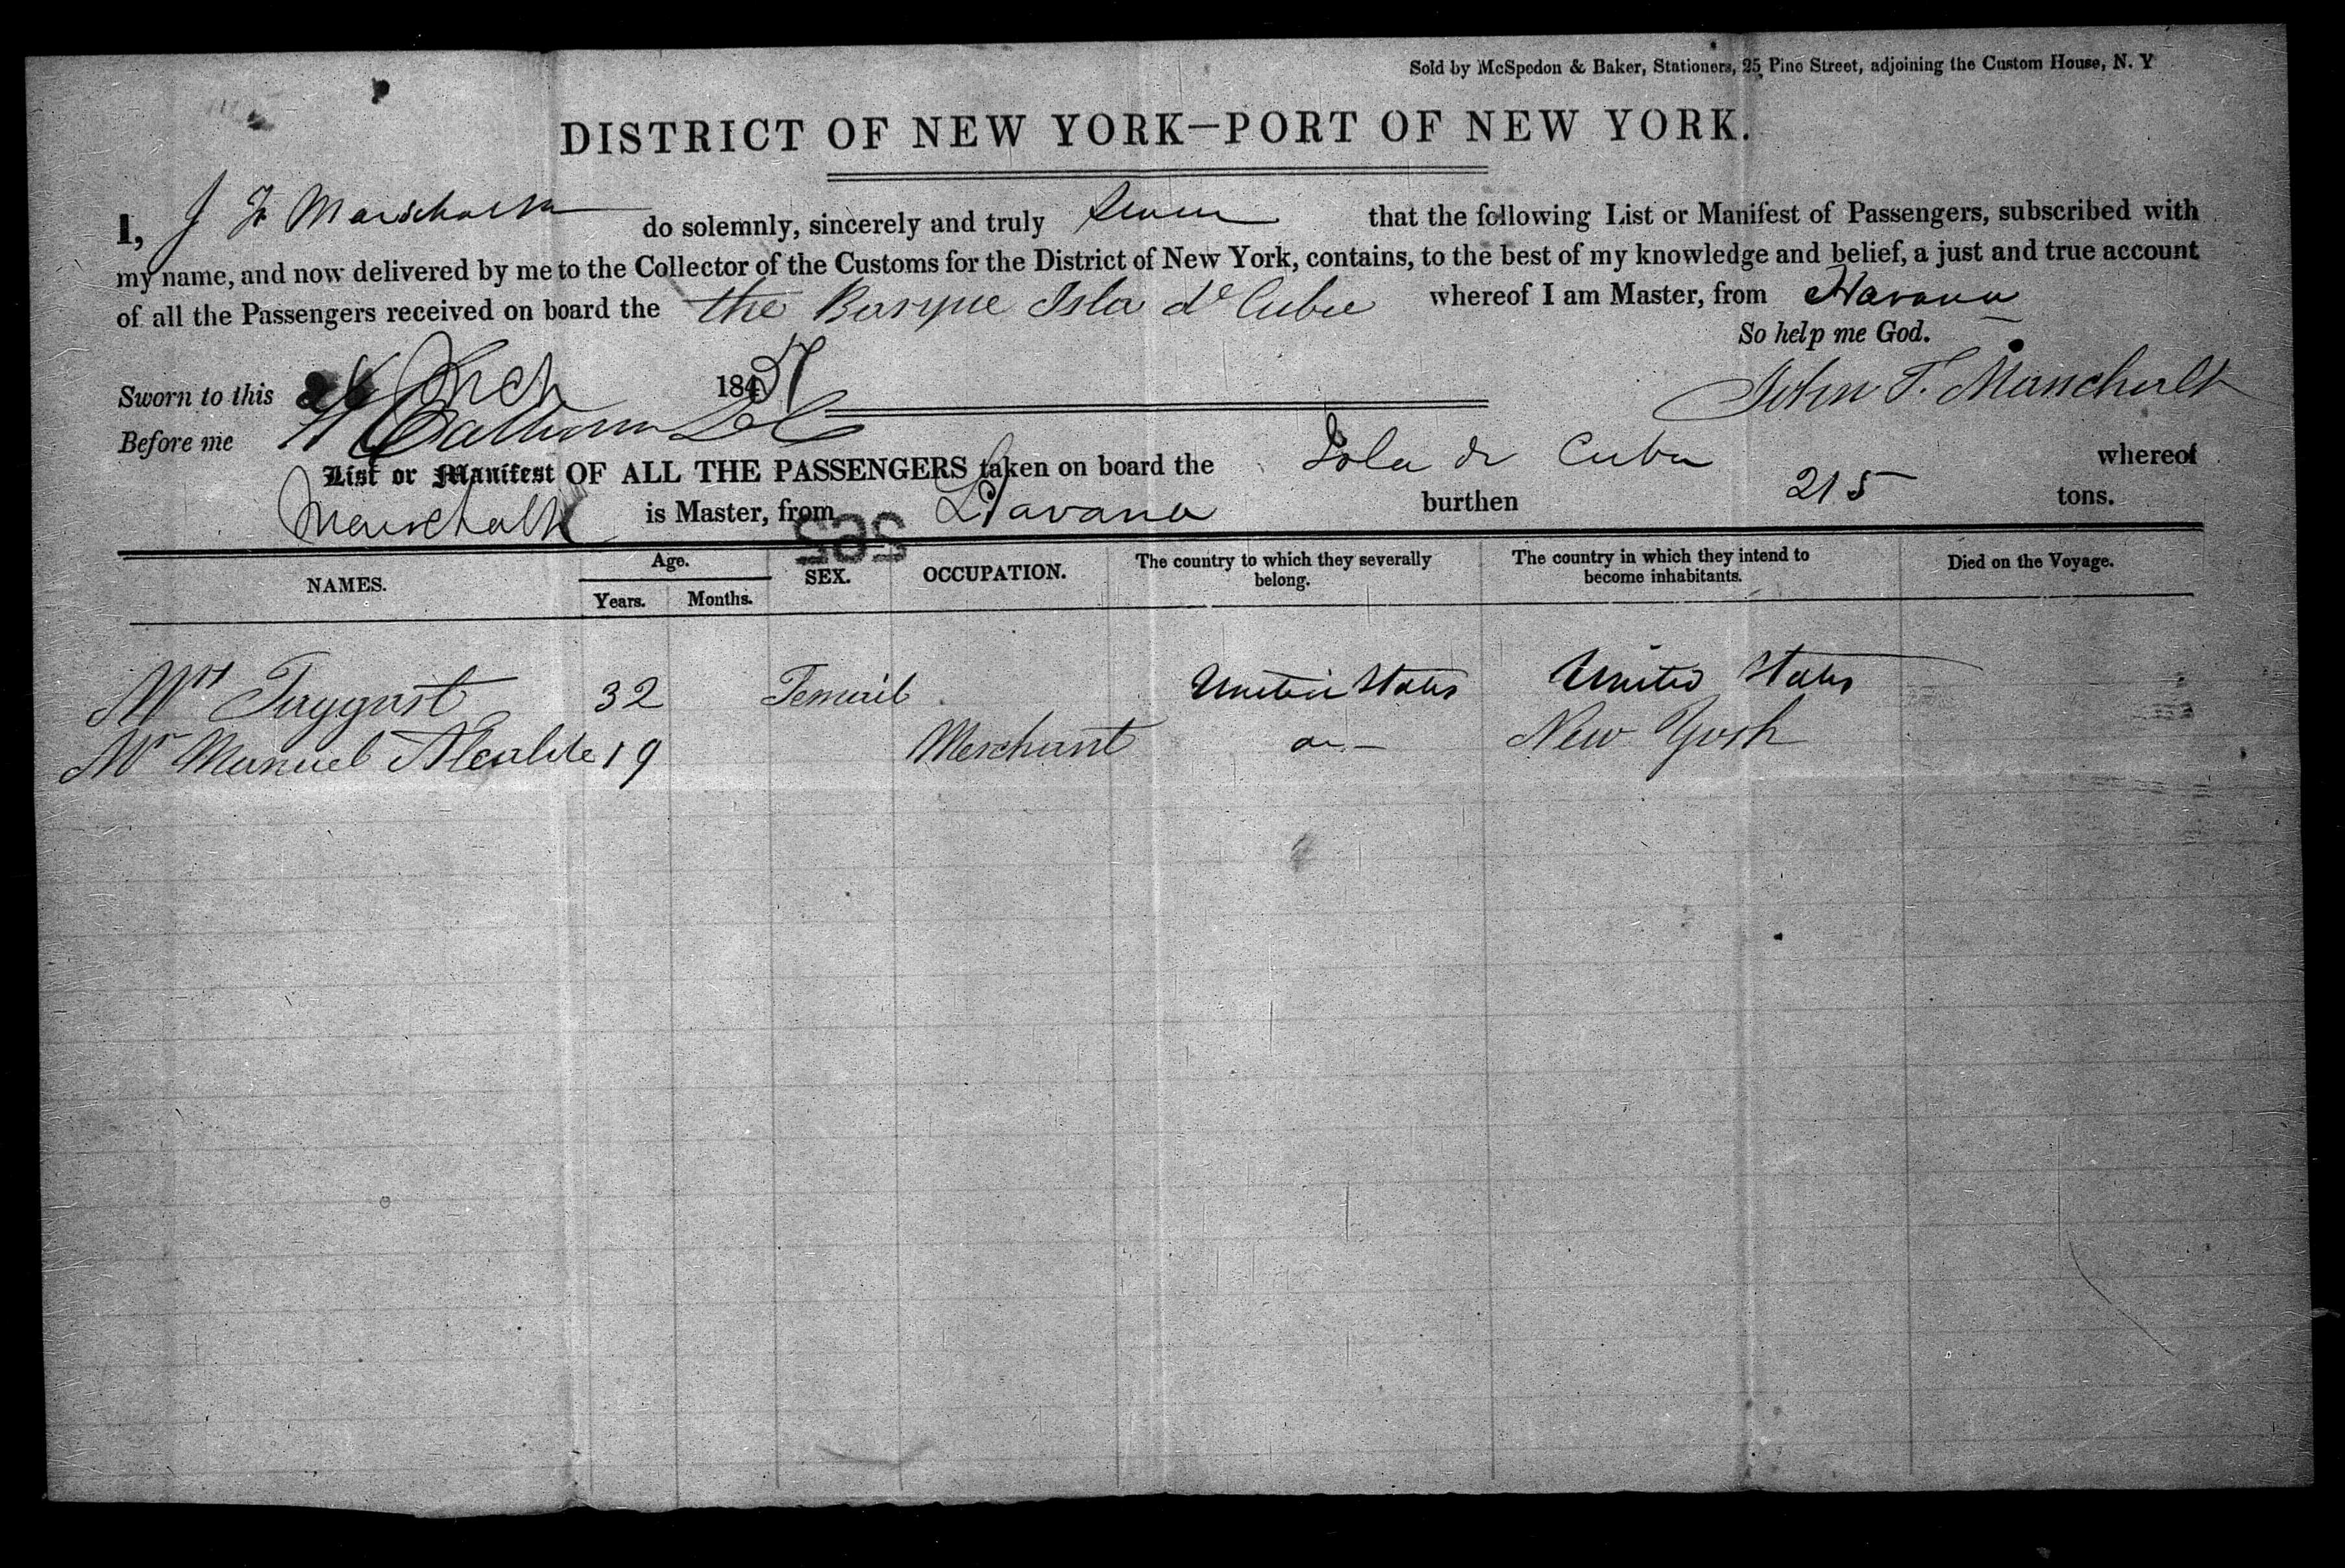 Sold by McSpedon & Baker, Stationers, 25 Pine Street, adjoining the Custom House, N. Y
DISTRICT OF NEW YORK—PORT OF NEW YORK.
I, J F Marschalk do solemnly, sincerely and truly swear that the following List or Manifest of Passengers, subscribed with
my name, and now delivered by me to the Collector of the Customs for the District of New York, contains, to the best of my knowledge and belief, a just and true account
of all the Passengers received on board the the Barque Isla de Cuba whereof I am Master, from Havana
So help me God.
Sworn to this 26 Mch 1851 John F. Marschalk
Before me
List or Manifest OF ALL THE PASSENGERS taken on board the Isla de Cuba whereof
Marschalk is Master, from Havana burthen 215 tons.
595
NAMES. Age. SEX. OCCUPATION. The country to which they severally belong. The country in which they intend to become inhabitants. Died on the Voyage.
Years. Months.
Mrs 32 Femail United States United States
Mr Manuel Alcalde 19 Merchant do — New York